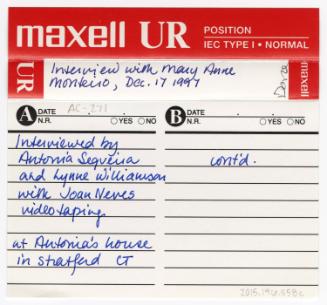 maxell UR POSITION
IEC TYPE I • NORMAL
UR
Interview with Mary Anne
Monteiro, Dec. 17 1997
maxell
A DATE AC-271
N.R. YES NO
Interviewed by
Antonia Sequeira
and Lynne Williamson
with Joan Neves
videotaping
at Antonia's house
in Stratford CT
B DATE
N.R. YES NO
cont'd.
2015.196.558c